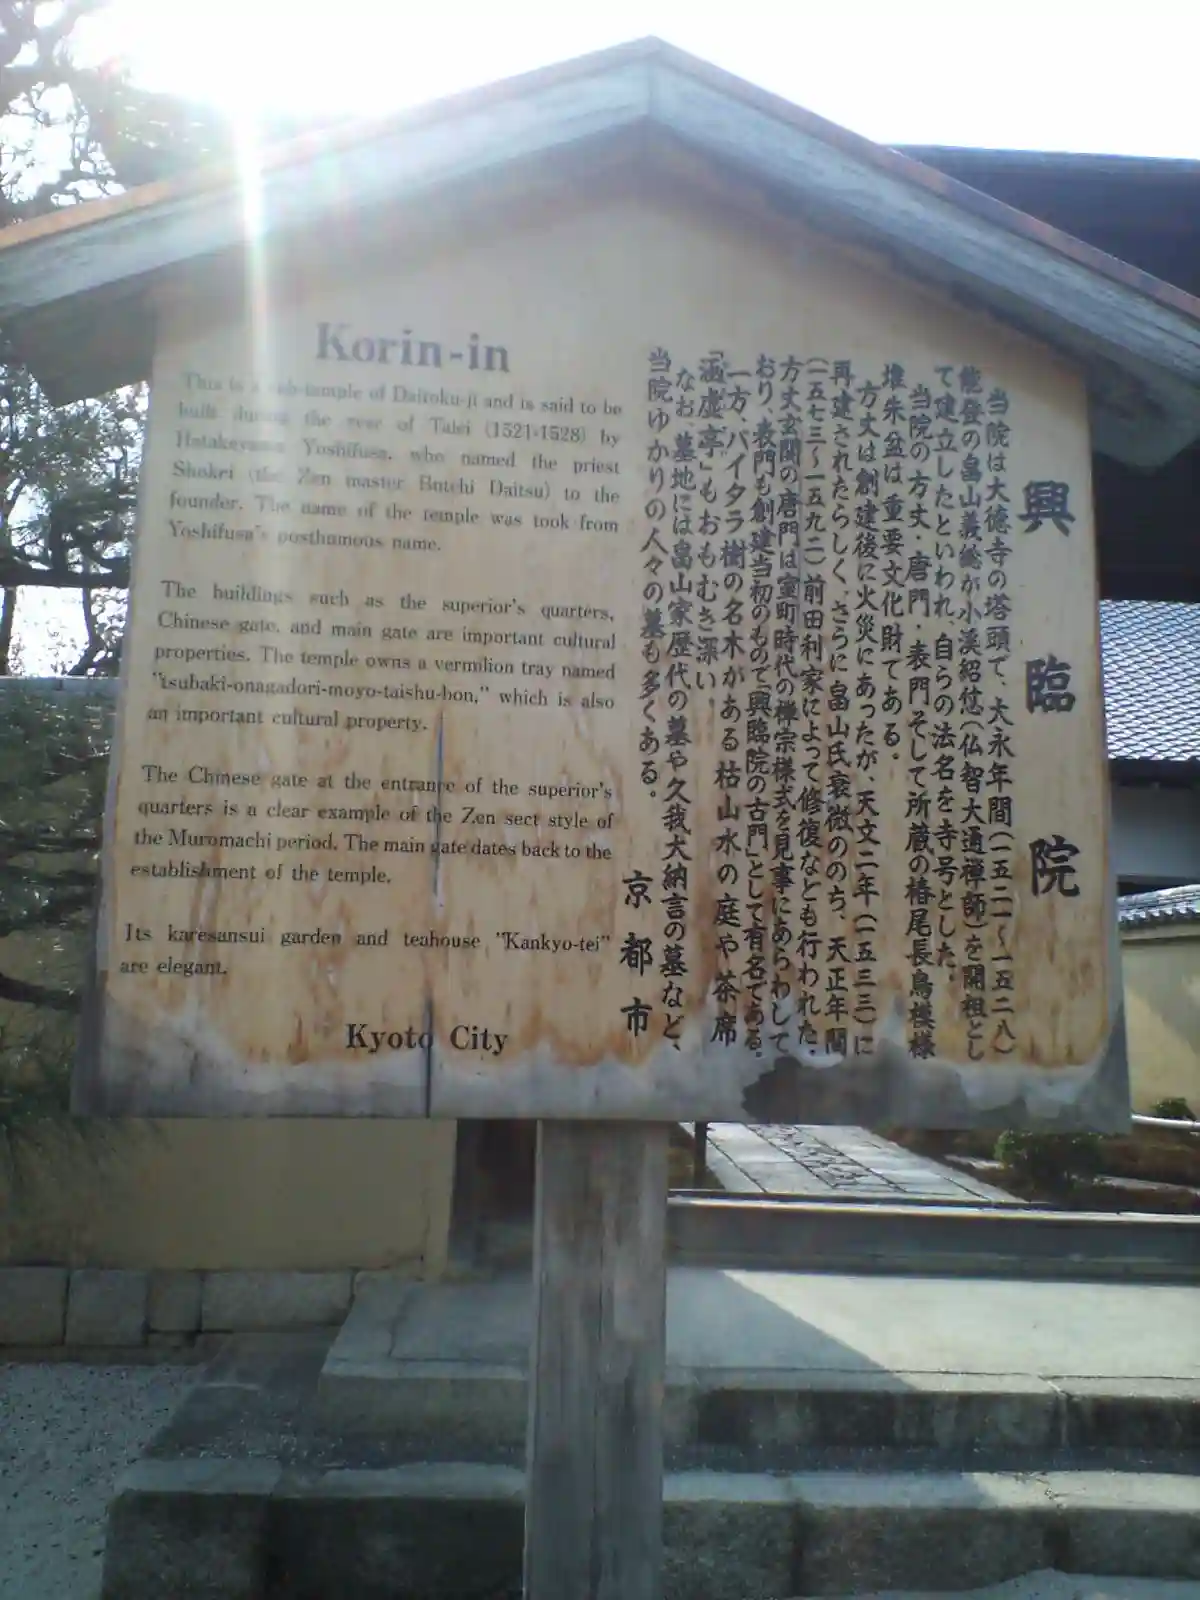 Korin-in
This is a sub-temple of Daitoku-ji and is said to be
built during the year of Talei (1521-1528) by
Hatakeyama Yoshifusa, who named the priest
Shokei (the Zen master Butchi Daitsu) to the
founder. The name of the temple was took from
Yoshifusa's posthumous name.
The buildings such as the superior's quarters,
Chinese gate, and main gate are important cultural
properties. The temple owns a vermilion tray named
"tsubaki-onagadori-moyo-taishu-bon," which is also
an important cultural property.
The Chinese gate at the entrance of the superior's
quarters is a clear example of the Zen sect style of
the Muromachi period. The main gate dates back to the
establishment of the temple.
Its karesansui garden and teahouse "Kankyo-tei"
are elegant.
Kyoto City
興臨院
当院は大徳寺の塔頭で、大永年間(一五二一〜一五二八)
能登の畠山義総が小渓紹怤(仏智大通禅師)を開祖とし
て建立したといわれ、自らの法名を寺号とした。
当院の方丈・唐門・表門そして所蔵の椿尾長鳥模様
堆朱盆は重要文化財てある。
方丈は創建後に火災にあったが、天文二年(一五三三)に
再建されたらしく、さらに畠山氏衰微ののち、天正年間
(一五七三〜一五九二)前田利家によって修復なども行われた。
方丈玄関の唐門は室町時代の禅宗様式を見事にあらわして
おり、表門も創建当初のもので「興臨院の古門」として有名である。
一方、バイタラ樹の名木がある枯山水の庭や茶席
「涵虚亭」もおもむき深い。
なお、墓地には畠山家歴代の墓や久我大納言の墓など、
当院ゆかりの人々の墓も多くある。
京都市